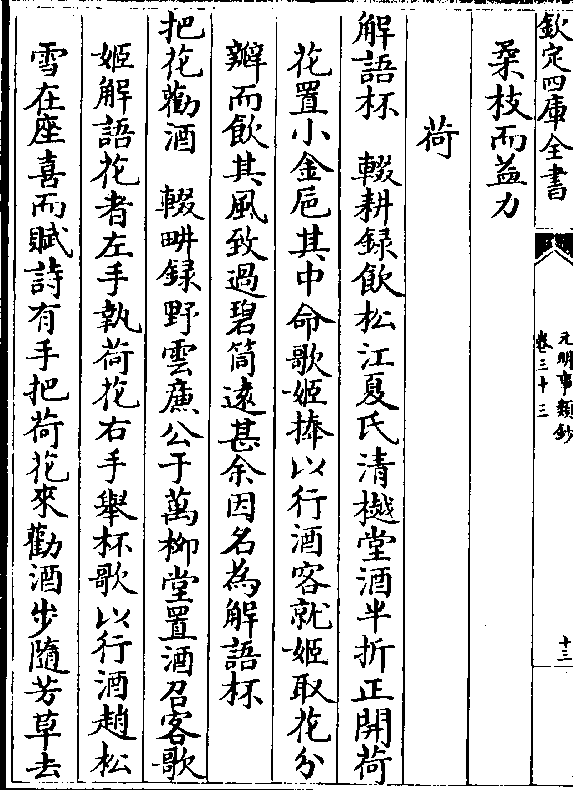 欽定四庫全書
元明事類鈔
卷三十三
十三
柔枝而益力
荷
解語杯　輟耕錄飲松江夏氏清樾堂酒半折正開荷
花置小金巵其中命歌姬捧以行酒客就姬取花分
瓣而飲其風致過碧筒遠甚余因名為解語杯
把花勸酒　輟畊錄野雲廉公于萬柳堂置酒召客歌
姬解語花者左手執荷花右手舉杯歌以行酒趙松
雪在座喜而賦詩有手把荷花來勸酒步隨芳草去